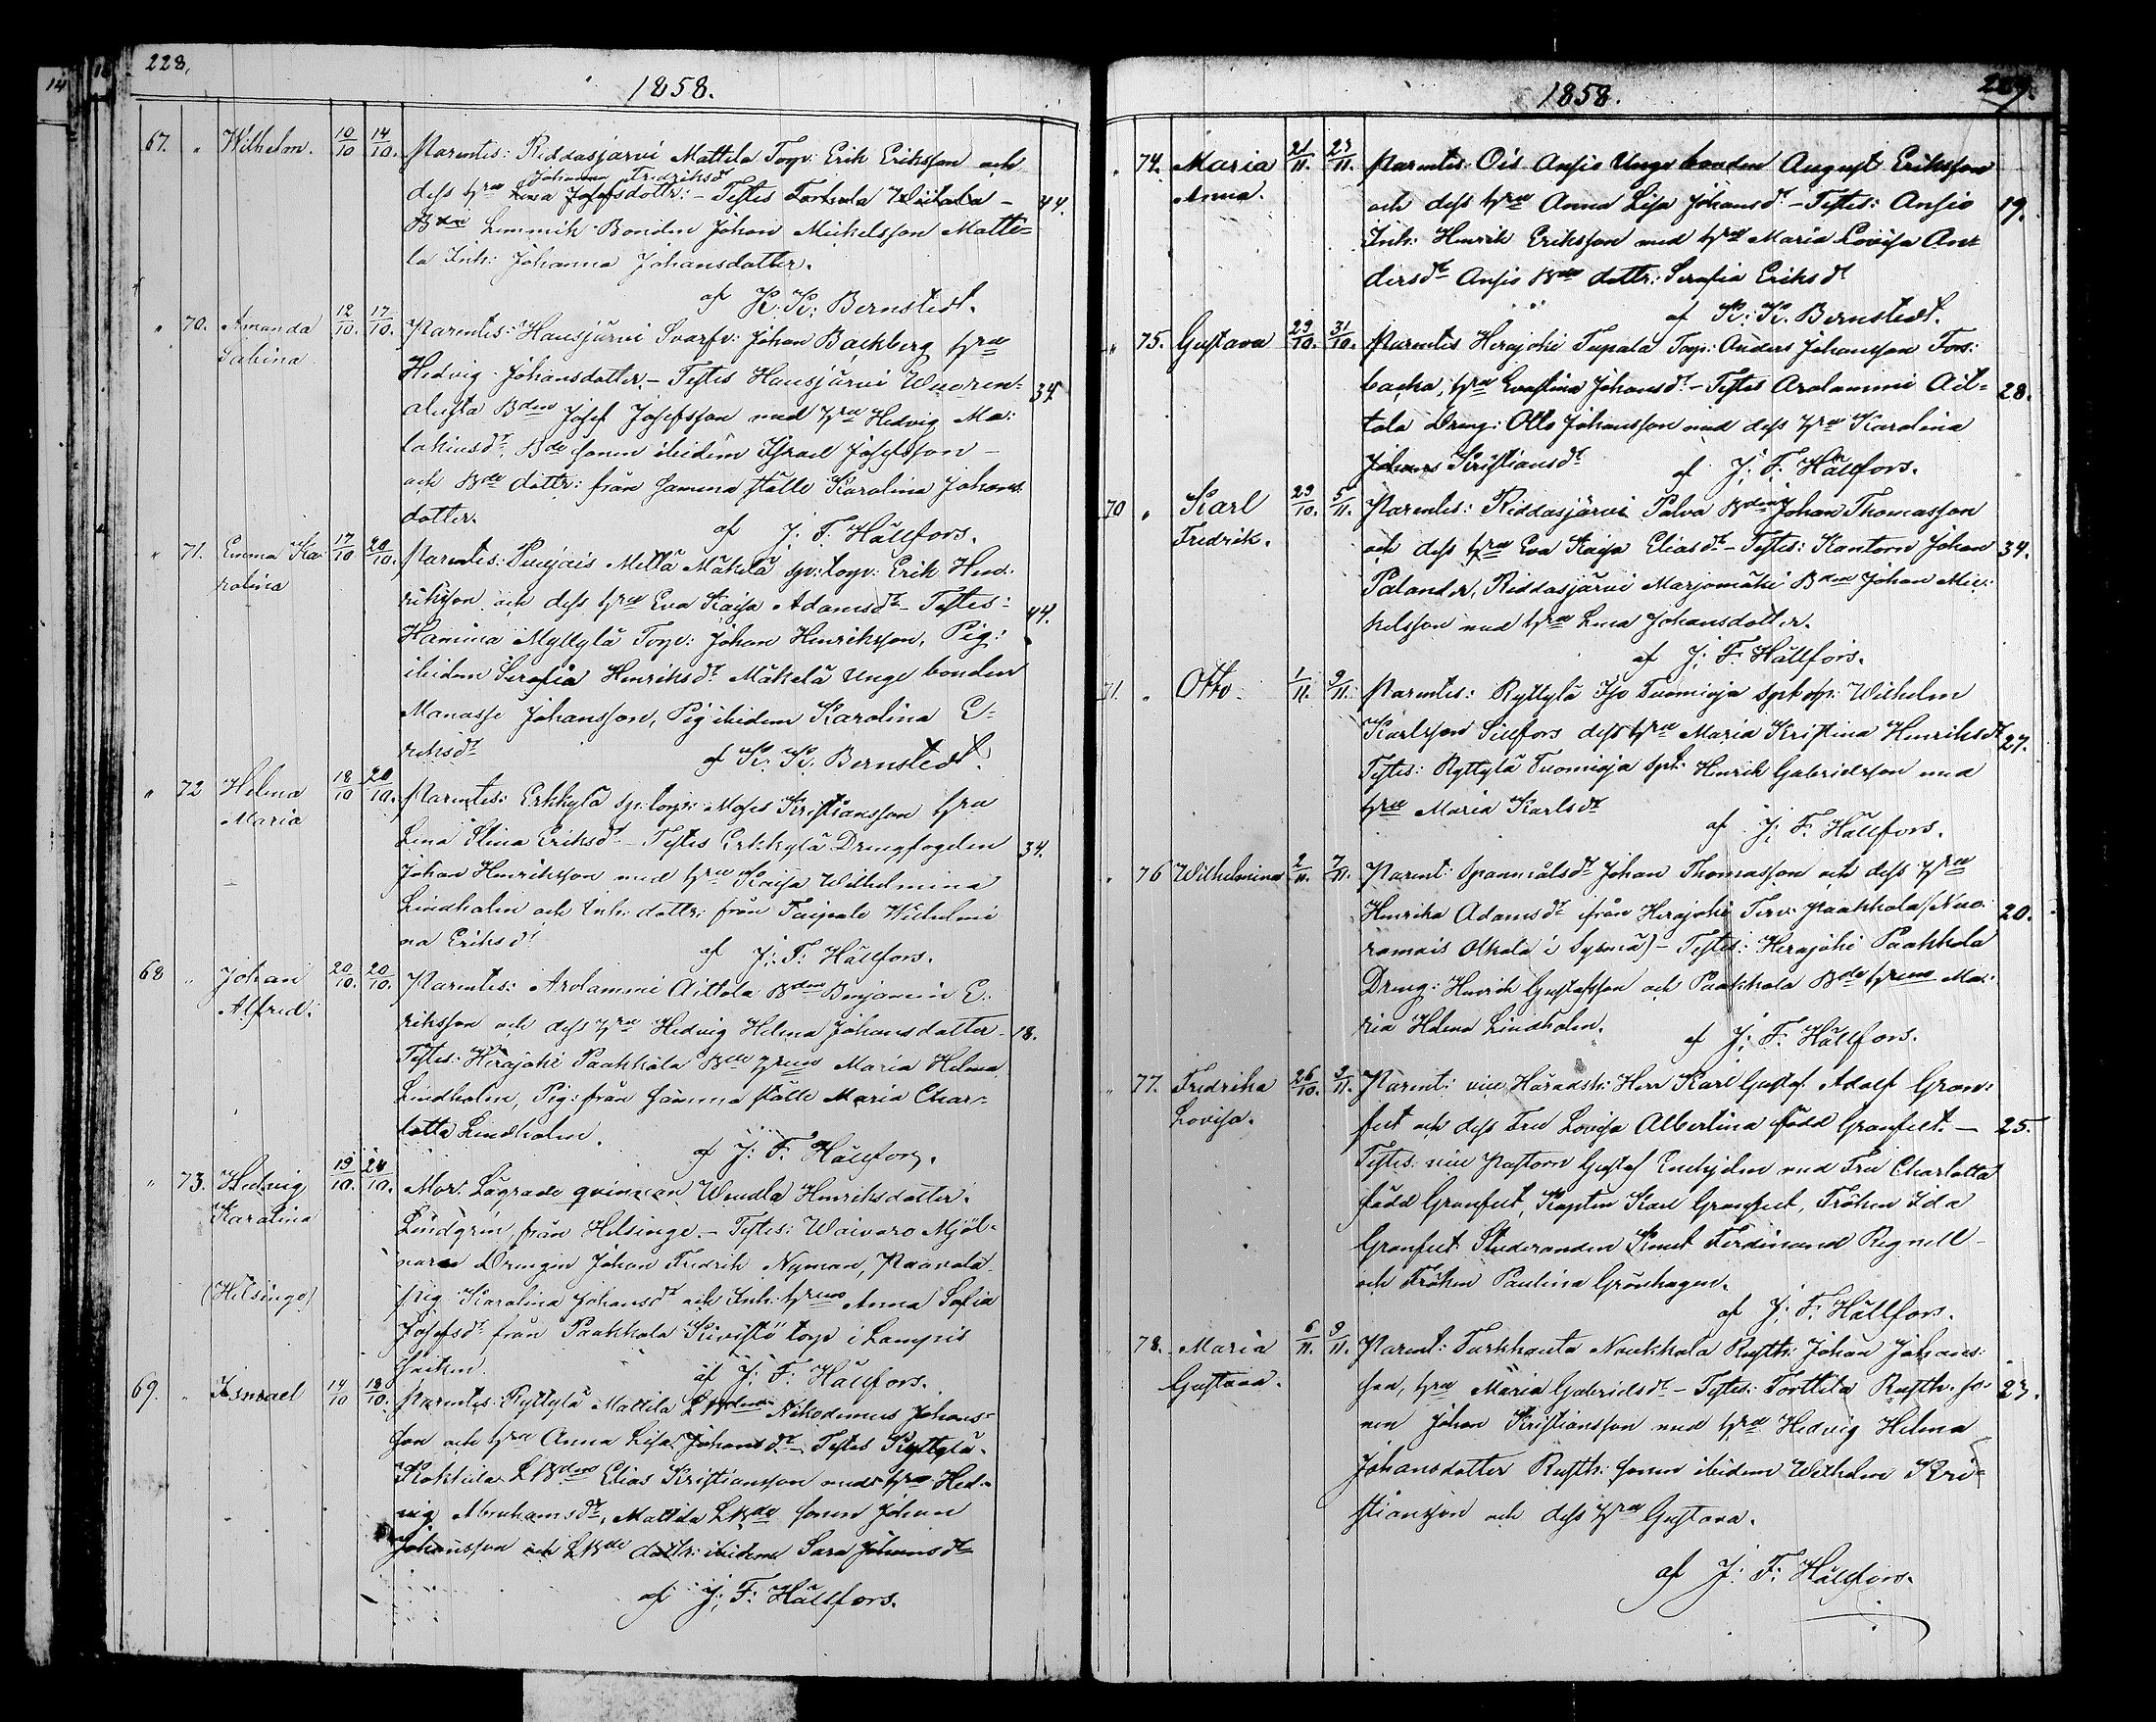 228.
1858.
67. " Wilhelm. 10/10 14/10. Parentes: Riddasjärvi Mattila Torp: Erik Eriksson och
Johanna Fredriksd
dess hru Lena Josefsdottr: – Testes Torhola Wiitala – 44.
Bden Lemmik Bonden Johan Mickelsson Matti=
la Inh: Johanna Johansdotter.
af K: K: Bernstedt.
" 70. Amanda 12/10. 17/10. Parentes: Hausjärvi Svarfv: Johan Backberg hru
Sabina
Hedvig Johansdotter. – Testes Hausjärvi Wuoren= 34.
alusta Bden Josef Josefsson med hru Hedvig Ma:
lakiasdr, Bde sonen ibidem Israel Josefsson –
och Bde dottr: från samma ställe Karolina Johans
dotter. af J: F: Hällfors.
" 71. Emma Ka 17/10 20/10. Parentes: Puujais Mellä Mäkelä sp: torp: Erik Hen:
rolina
riksson och dess hru Eva Kaisa Adamsdr – Testes: 44.
Hamina Myllylä Torp: Johan Henriksson, Pig:
ibidem Serafia Henriksdr Mäkelä unge bonden
Manasse Johansson, Pig ibidem Karolina E=
riksdr af K: K: Bernstedt.
" 72 Helena 18/10 20/10. Parentes: Erkkylä sp: torp: Moses Kristiansson hru
Maria
Lena Stina Eriksdr – Testes Erkkylä Drengfogden 34.
Johan Henriksson med hru Kaisa Wilhelmina
Lindholm och Inh: dottr: från Taipale Wilhelmi
na Eriksdr af J: F: Hällfors.
68 " Johan 20/10. 20/10. Parentes: Arolammi Aittola Bden Benjamin E:
Alfred:
riksson och dess hru Hedvig Helena Johansdotter – 18.
Testes: Herajoki Paakkola Bde hrun Maria Helena
Lindholm, Pig: från samma ställe Maria Char=
lotta Lindholm.
af J: F: Hällfors.
" 73. Hedvig 19/10. 24/10. Mor: Lägrade qvinnan Wendla Henriksdotter
Karolina
Lindgrén, från Helsinge. – Testes: Waivaro Mjöl=
nare Drengen Johan Fredrik Nyman, Paavola
(Helsinge) pig Karolina Johansdr och Inh: hrun Anna Sofia
Josefsdr från Paakkola Kivistö torp i Lampis
socken. af J: F: Hällfors.
69. " Ismael 14/10 18/10. Parentes: Ryttylä Mattila LBden Nikodemus Johans=
son och hru Anna Lisa Johansdr – Testes Ryttylä
Kokkila LBden Elias Kristiansson med hru Hed=
vig Abrahamsdr, Mattila LBde sonen Johan
Johansson och LBde dottr: ibidem Sara Johansdr
af J: F: Hällfors.
1858. 229.
" 74. Maria 21/11. 23/11. Parentes: Ois Ansio Unge bonden August Eriksson
Anna.
och dess hru Anna Lisa Johansdr – Testes: Ansio 19.
Inh: Henrik Eriksson med hru Maria Lovisa An=
dersdr Ansio Bde dottr: Serafia Eriksdr
af K: K: Bernstedt.
" 75. Gustava 29/10. 31/10. Parentes Herajoki Tupala Torp: Anders Johansson Fors:
backa, hru Evastina Johansdr – Testes Arolammi Ait= 28.
tola Dreng: Otto Johansson med dess hru Karolina
Johans Kristiansdr af J: F: Hällfors.
70 " Karl 29/10. 5/11. Parentes: Riddasjärvi Palva Bden Johan Thomasson
Fredrik.
och dess hru Eva Kaisa Eliasdr – Testes: Kantorn Johan 34.
Palander, Riddasjärvi Marjomäki Bden Johan Mic:
kelsson med hru Lena Johansdotter.
af J: F: Hällfors.
71. " Otto. 1/11. 9/11. Parentes: Ryttylä Tuomioja Wilhelm
Karlsson Sillfors dess hru Maria Kristina Henriksdr 27.
Testes: Ryttylä Tuomioja Henrik Gabrielsson med
hru Maria Karlsdr
af J: F: Hällfors.
" 76 Wilhelmina 2/11. 7/11. Parent: Spanmålsdr Johan Thomasson och dess hru
Henrika Adamsdr från Herajoki Paakkola (Nuo 20.
ramais Olkola i Sysmä) – Testes: Herajoki Paakkola
Dreng: Henrik Gustafsson och Paakkola Bde hrun Ma:
ria Helena Lindholm. af J: F: Hällfors.
" 77. Fredrika 26/10. 9/11. Parent: vice Häradsh: Herr Karl Gustaf Adolf Gran:
Lovisa.
felt och dess Fru Lovisa Albertina född Granfelt. – 25.
Testes: vice Pastorn Gustaf Enehjelm med Fru Charlotta
född Granfelt, Kapten Karl Granfelt, Fröken Ida
Granfelt Studeranden Knut Ferdinand Regnell
och Fröken Paulina Grönhagen.
af J: F: Hällfors.
78. Maria 6/11. 9/11. Parent: Turkhauta Noukkala Rusth: Johan Johans:
Gustava.
son, hru Maria Gabrielsdr – Testes: Torttila Rusth. so: 23.
nen Johan Kristiansson med hru Hedvig Helena
Johansdotter Rusth: sonen ibidem Wilhelm Kri=
stiansson och dess hru Gustava.
af J: F: Hällfors.